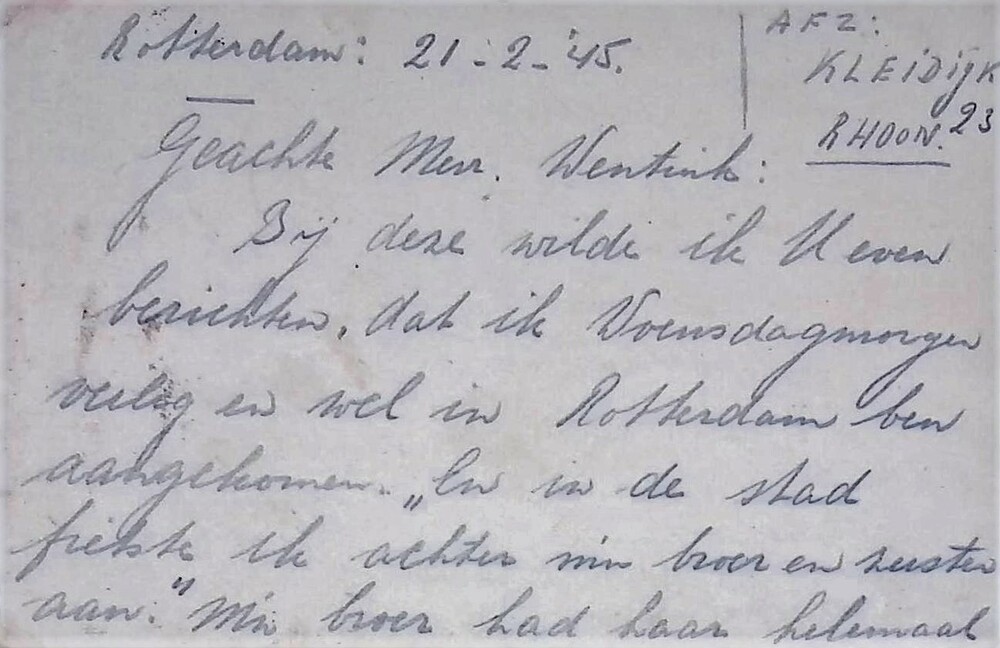 Rotterdam: 21-2-'45.
AFZ:
KLEIDIJK 23
RHOON.
Geachte Mevr. Wentink:
Bij deze wilde ik U even
berichten, dat ik Woensdagmorgen
veilig en wel in Rotterdam ben
aangekomen. „En in de stad
fietste ik achter m'n broer en zuster
aan." M'n broer had haar helemaal